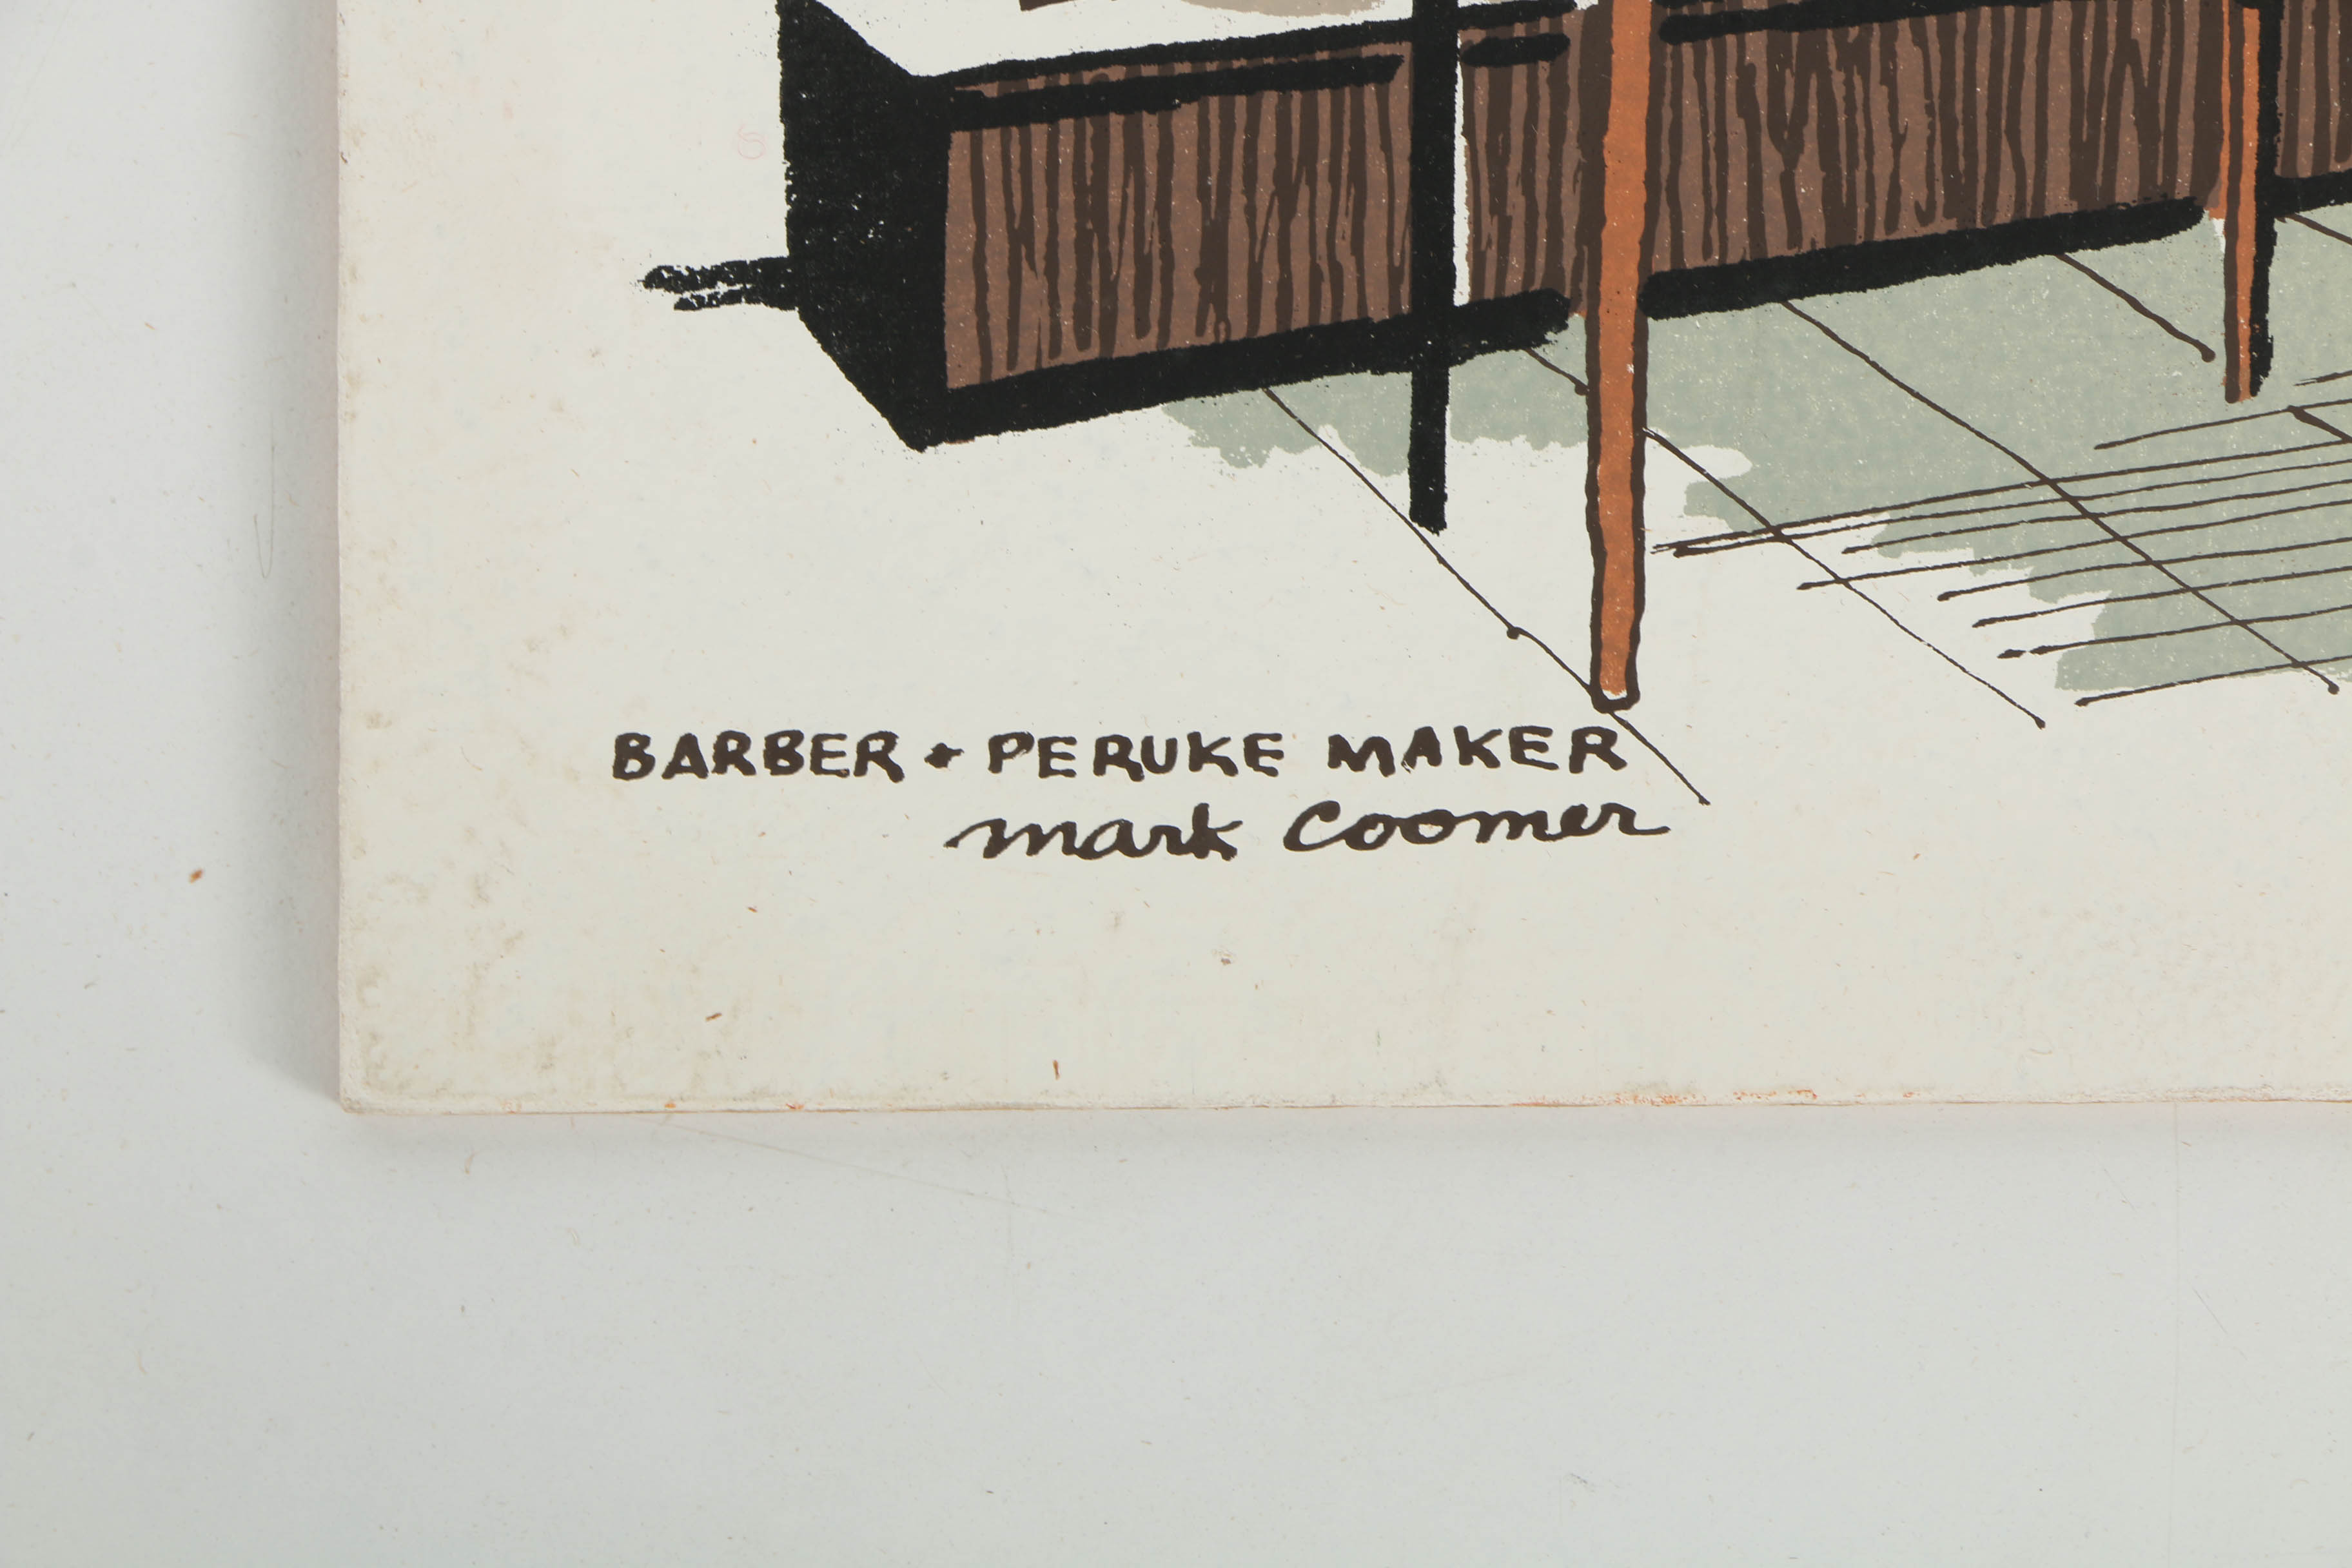 BARBER + PERUKE MAKER
mark Coomer